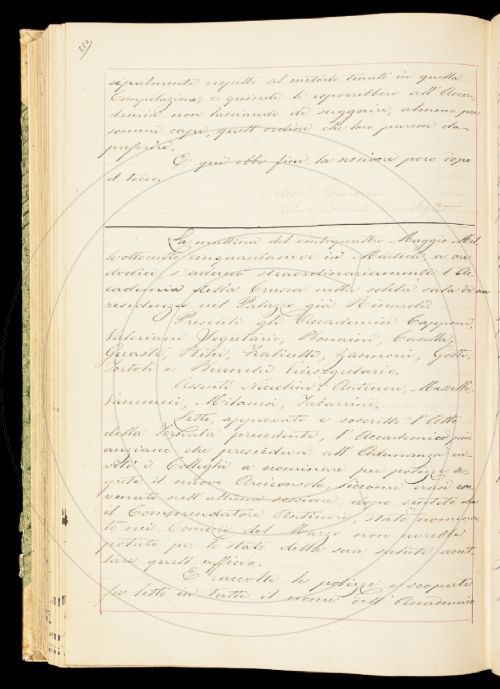 cipalmente rispetto al metodo tenuto in quella
Compilazione; e quindi le esporrebbero all'Acca-
demia non lasciando di suggerire, almeno per
sommi capi, quell'ordine che loro paresse da
preferire.
E qui ebbe fine la sessione poco dopo
il tocco.
La mattina del ventiquattro Maggio Mil-
leottocento cinquantanove in Martedì, a ore
dodici s'adunò straordinariamente l'Ac-
cademia della Crusca nella solita sala di sua
residenza nel Palazzo già Riccardi.
Presenti gli Accademici Capponi,
Valeriani, Vegetario, Bonaini, Casella,
Guasti, Bini, Fraticelli, Zannoni, Gotti,
Tortoli e Vicesegretario.
Assenti Niccolini, Antinori, Masselli,
Vannucci, Milanesi, Tabarrini.
Letto, approvato e soscritto l'Atto
della Tornata precedente, l'Accademico più
anziano che presiedeva all'Adunanza in-
vitò i Colleghi a nominare per polizze se-
grete il nuovo Arciconsolo, siccome erasi con-
venuto nell'ultima sessione, dopo sentito che
il Commendatore Antinori, stato nomina-
to nei Comizi del Marzo non avrebbe
potuto per lo stato della sua salute accet-
tare quell'ufficio.
E raccolte le polizze e scoperto
fu letto in tutti il nome dell'Accademico